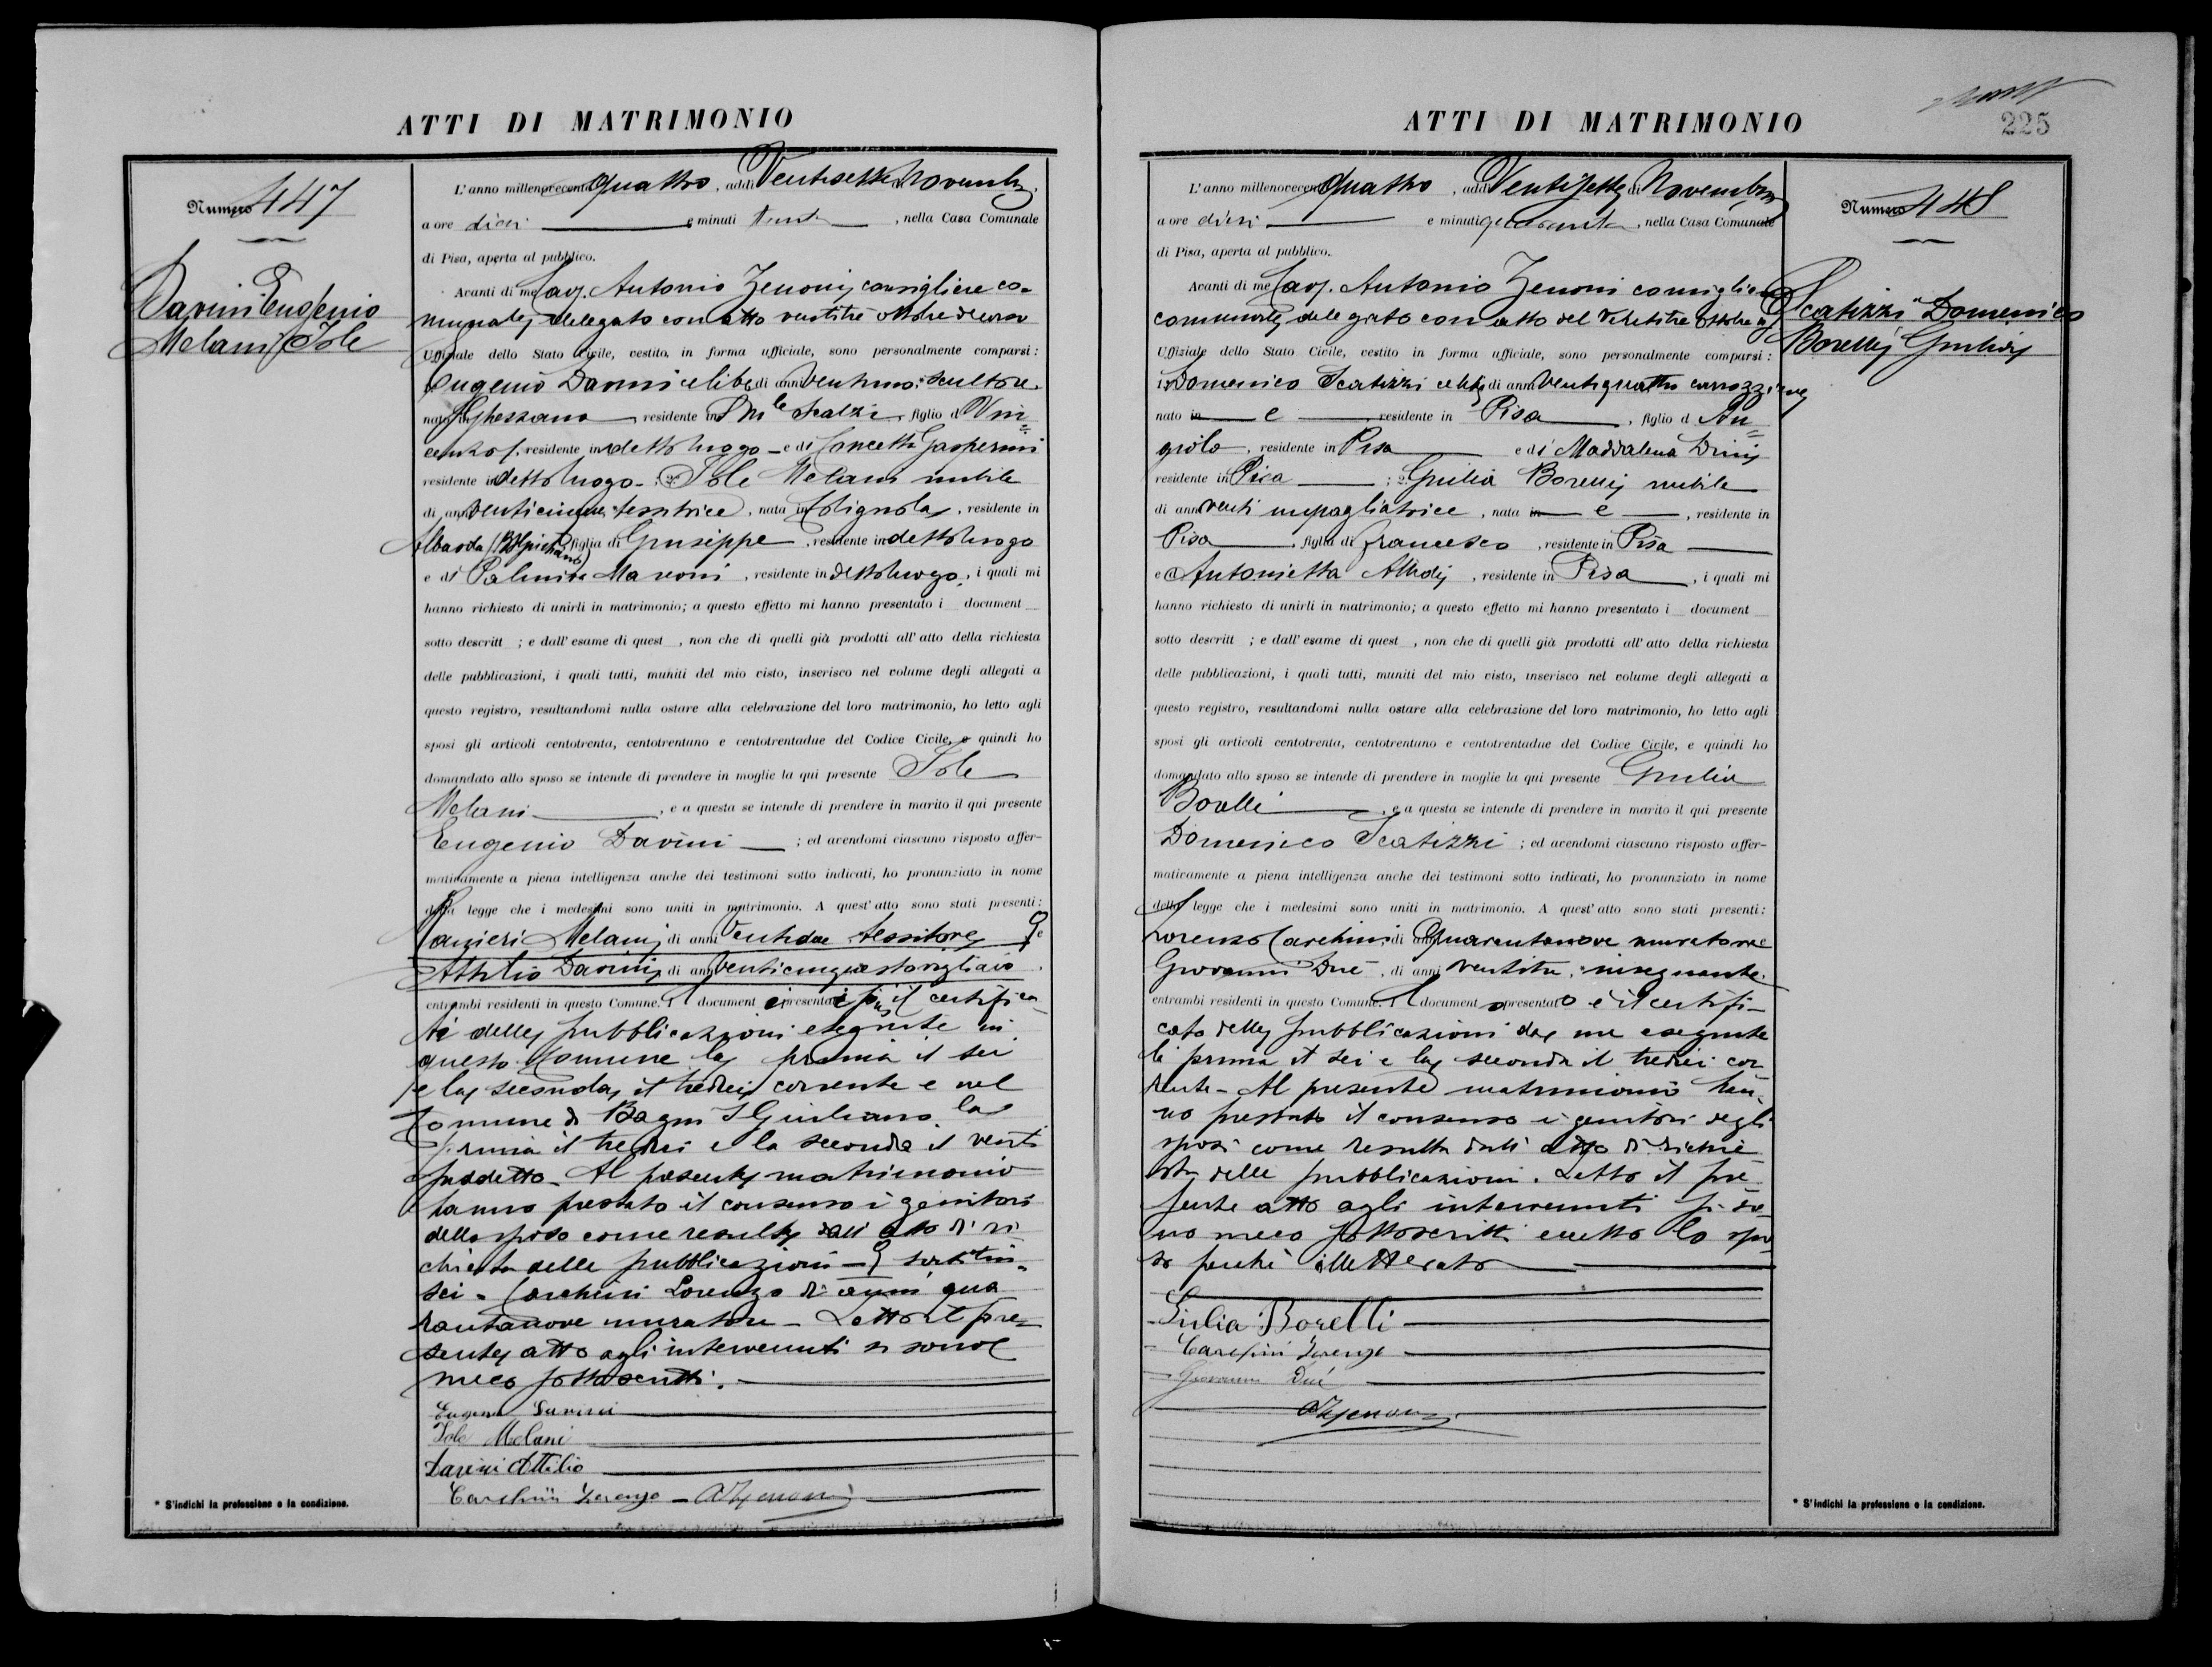 ATTI DI MATRIMONIO
Numero 447
Davini Eugenio
Melani Iole
L'anno millenovecento quattro, addì Ventisette di Novembre
a ore dieci e minuti trenta, nella Casa Comunale
di Pisa, aperta al pubblico.
Avanti di me Cav. Antonio Zenoni, consigliere co-
munale, delegato con atto ventitre ottobre decorso
Uffiziale dello Stato Civile, vestito in forma ufficiale, sono personalmente comparsi:
Eugenio Davini celibe di anni ventuno scultore
nato in Ghezzano residente in S. Mle Scalzi, figlio di Vin
cenzo, residente in detto luogo e di Concetta Gasperini
residente in detto luogo; 2° Iole Melani nubile
di anni venticinque tessitrice, nata in Colignola, residente in
figlia di Giuseppe, residente in detto luogo
e di Palmira Marconi, residente in detto luogo, i quali mi
hanno richiesto di unirli in matrimonio; a questo effetto mi hanno presentato i document
sotto descritt ; e dall'esame di quest , non che di quelli già prodotti all'atto della richiesta
delle pubblicazioni, i quali tutti, muniti del mio visto, inserisco nel volume degli allegati a
questo registro, resultandomi nulla ostare alla celebrazione del loro matrimonio, ho letto agli
sposi gli articoli centotrenta, centotrentuno e centotrentadue del Codice Civile, e quindi ho
domandato allo sposo se intende di prendere in moglie la qui presente Iole
Melani, e a questa se intende di prendere in marito il qui presente
Eugenio Davini; ed avendomi ciascuno risposto affer-
mativamente a piena intelligenza anche dei testimoni sotto indicati, ho pronunziato in nome
della legge che i medesimi sono uniti in matrimonio. A quest'atto sono stati presenti:
Ranieri Melani, di anni Ventidue tessitore, e
Attilio Davini, di anni Venticinque stovigliaio,
entrambi residenti in questo Comune. I document i presentati sono i certifica
ti delle pubblicazioni eseguite in
questo Comune la prima il sei
e la seconda il tredici corrente e nel
Comune di Bagni S Giuliano la
prima il tredici e la seconda il venti
suddetto. Al presente matrimonio
hanno prestato il consenso i genitori
dello sposo come resulta dall'atto di ri-
chiesta delle pubblicazioni
Carchini Lorenzo di anni qua
rantanove muratore - Letto il pre-
sente atto agli intervenuti si sono
meco sottoscritti.
Eugenio Davini
Iole Melani
Davini Attilio
Carchini Lorenzo - AZenoni
* S'indichi la professione o la condizione.
225
ATTI DI MATRIMONIO
Numero 448
Scatizzi Domenico
Borelli Giulia
L'anno millenovecento quattro, addì Ventisette di Novembre
a ore dieci e minuti quaranta, nella Casa Comunale
di Pisa, aperta al pubblico.
Avanti di me Cav. Antonio Zenoni consigliere
comunale, delegato con atto del Ventitre ottobre
Uffiziale dello Stato Civile, vestito in forma ufficiale, sono personalmente comparsi:
1° Domenico Scatizzi celibe di anni ventiquattro carrozziere
nato in e residente in Pisa, figlio d An
giolo, residente in Pisa e di Maddalena Dini
residente in Pisa; 2° Giulia Borelli nubile
di anni venti impagliatrice, nata in e, residente in
Pisa, figlia di Francesco, residente in Pisa
e di Antonietta, residente in Pisa, i quali mi
hanno richiesto di unirli in matrimonio; a questo effetto mi hanno presentato i document
sotto descritt ; e dall'esame di quest , non che di quelli già prodotti all'atto della richiesta
delle pubblicazioni, i quali tutti, muniti del mio visto, inserisco nel volume degli allegati a
questo registro, resultandomi nulla ostare alla celebrazione del loro matrimonio, ho letto agli
sposi gli articoli centotrenta, centotrentuno e centotrentadue del Codice Civile, e quindi ho
domandato allo sposo se intende di prendere in moglie la qui presente Giulia
Borelli, e a questa se intende di prendere in marito il qui presente
Domenico Scatizzi; ed avendomi ciascuno risposto affer-
mativamente a piena intelligenza anche dei testimoni sotto indicati, ho pronunziato in nome
della legge che i medesimi sono uniti in matrimonio. A quest'atto sono stati presenti:
Lorenzo Carchini di anni Quarantanove muratore e
Giovanni Dué, di anni ventitre, insegnante,
entrambi residenti in questo Comune. Il document o presentato è il certifi-
cato delle pubblicazioni da me eseguite
la prima il sei e la seconda il tredici cor
rente - Al presente matrimonio han-
no prestato il consenso i genitori degli
sposi come resulta dall'atto di richie
sta delle pubblicazioni. Letto il pre
sente atto agli intervenuti si so-
no meco sottoscritti eccetto lo spo
so perchè illetterato
Giulia Borelli
Carchini Lorenzo
Giovanni Dué
AZenoni
* S'indichi la professione o la condizione.